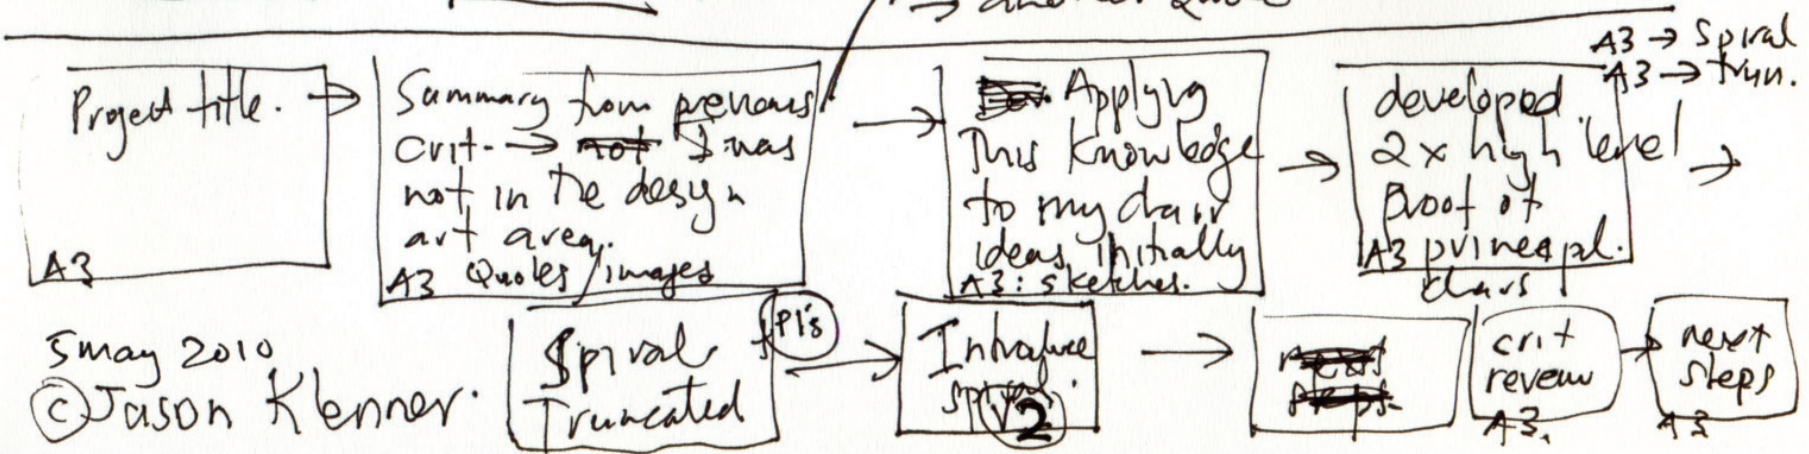 → another Quote
A3 → Spiral
A3 → trun.
Project title. →
A3
Summary from previous
crit. → not I was
not in the design
art area.
A3 Quotes/images
→
Applying
This knowledge
to my chair
ideas initially
A3: sketches.
→
developed
2x high level
Proof of
A3 principal.
chairs
→
5 may 2010
© Jason Klenner.
Spiral
Truncated
P1's
→
Introduce
Spiral
2
→
next
steps.
crit
reveiw
A3.
→
next
steps
A3